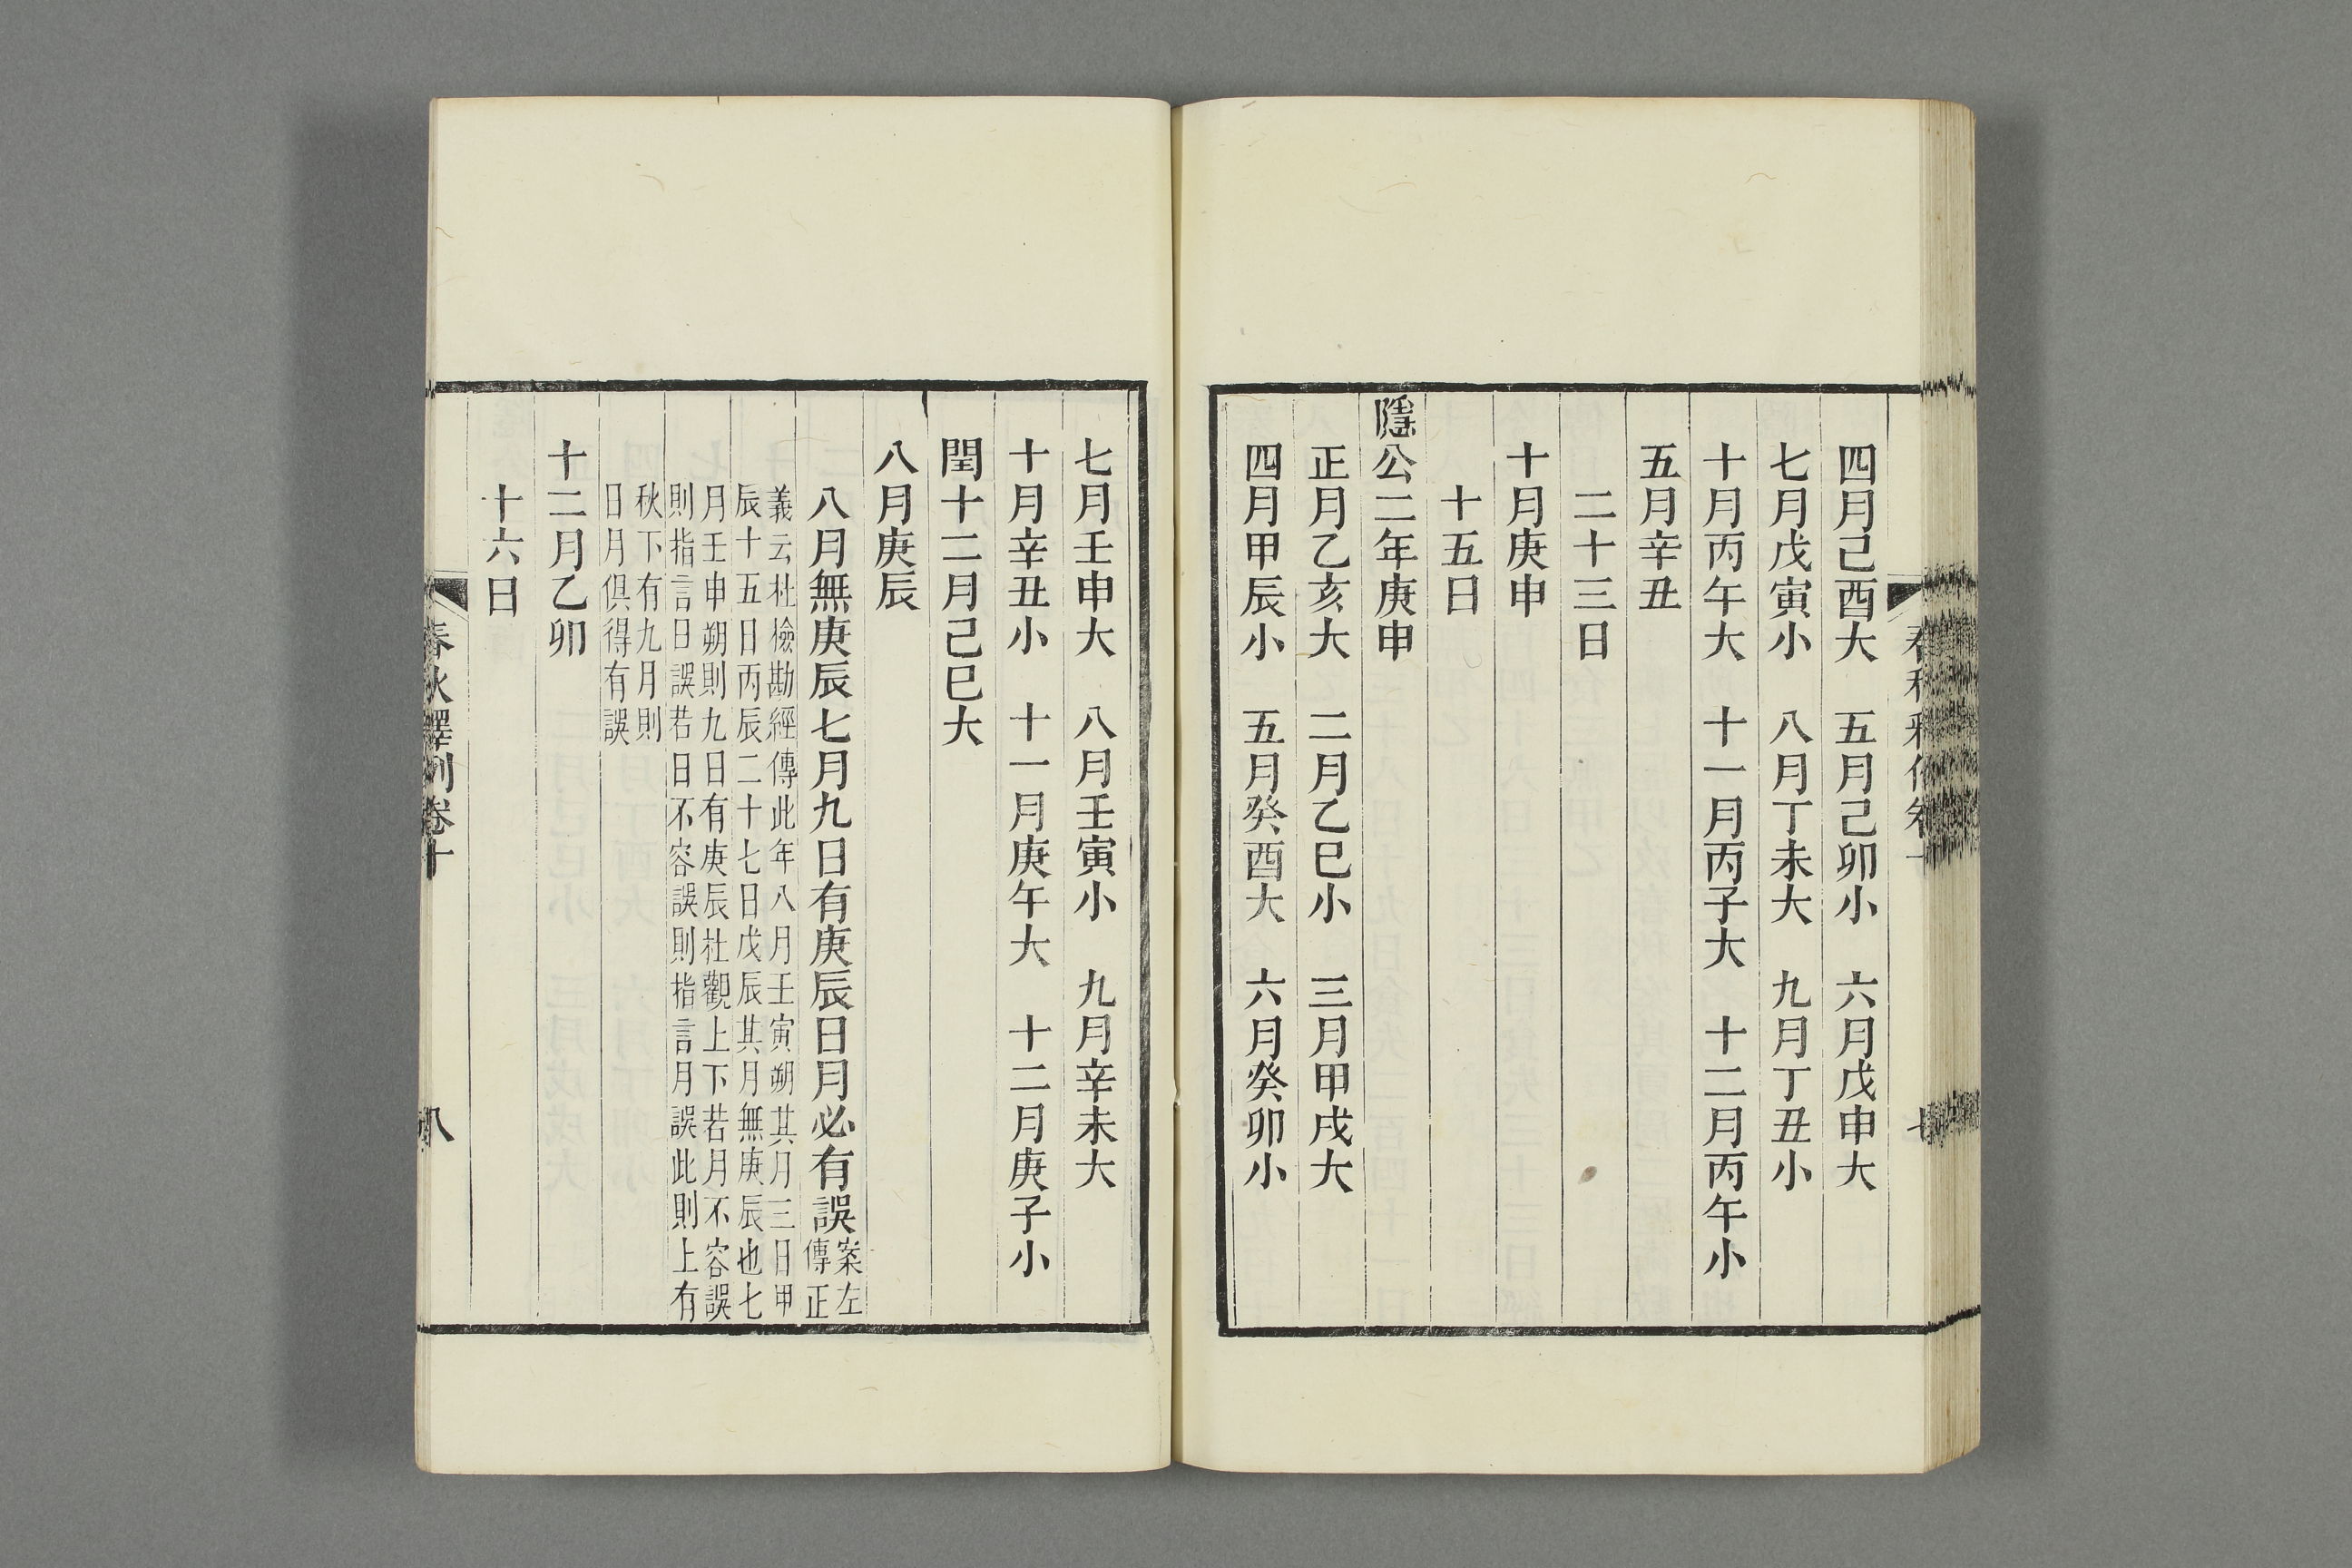 四月己酉大　五月己卯小　六月戊申大
七月戊寅小　八月丁未大　九月丁丑小
十月丙午大　十一月丙子大　十二月丙午小
五月辛丑
二十三日
十月庚申
十五日
隱公二年庚申
正月乙亥大　二月乙巳小　三月甲戌大
四月甲辰小　五月癸酉大　六月癸卯小
七月壬申大　八月壬寅小　九月辛未大
十月辛丑小　十一月庚午大　十二月庚子小
閏十二月己巳大
八月庚辰
八月無庚辰七月九日有庚辰日月必有誤案左
傳正
義云杜檢勘經傳此年八月壬寅朔其月三日甲
辰十五日丙辰二十七日戊辰其月無庚辰也七
月壬申朔則九日有庚辰杜觀上下若月不容誤
則指言日誤若日不容誤則指言月誤此則上有
秋下有九月則
日月俱得有誤
十二月乙卯
十六日
春秋釋例卷十
八